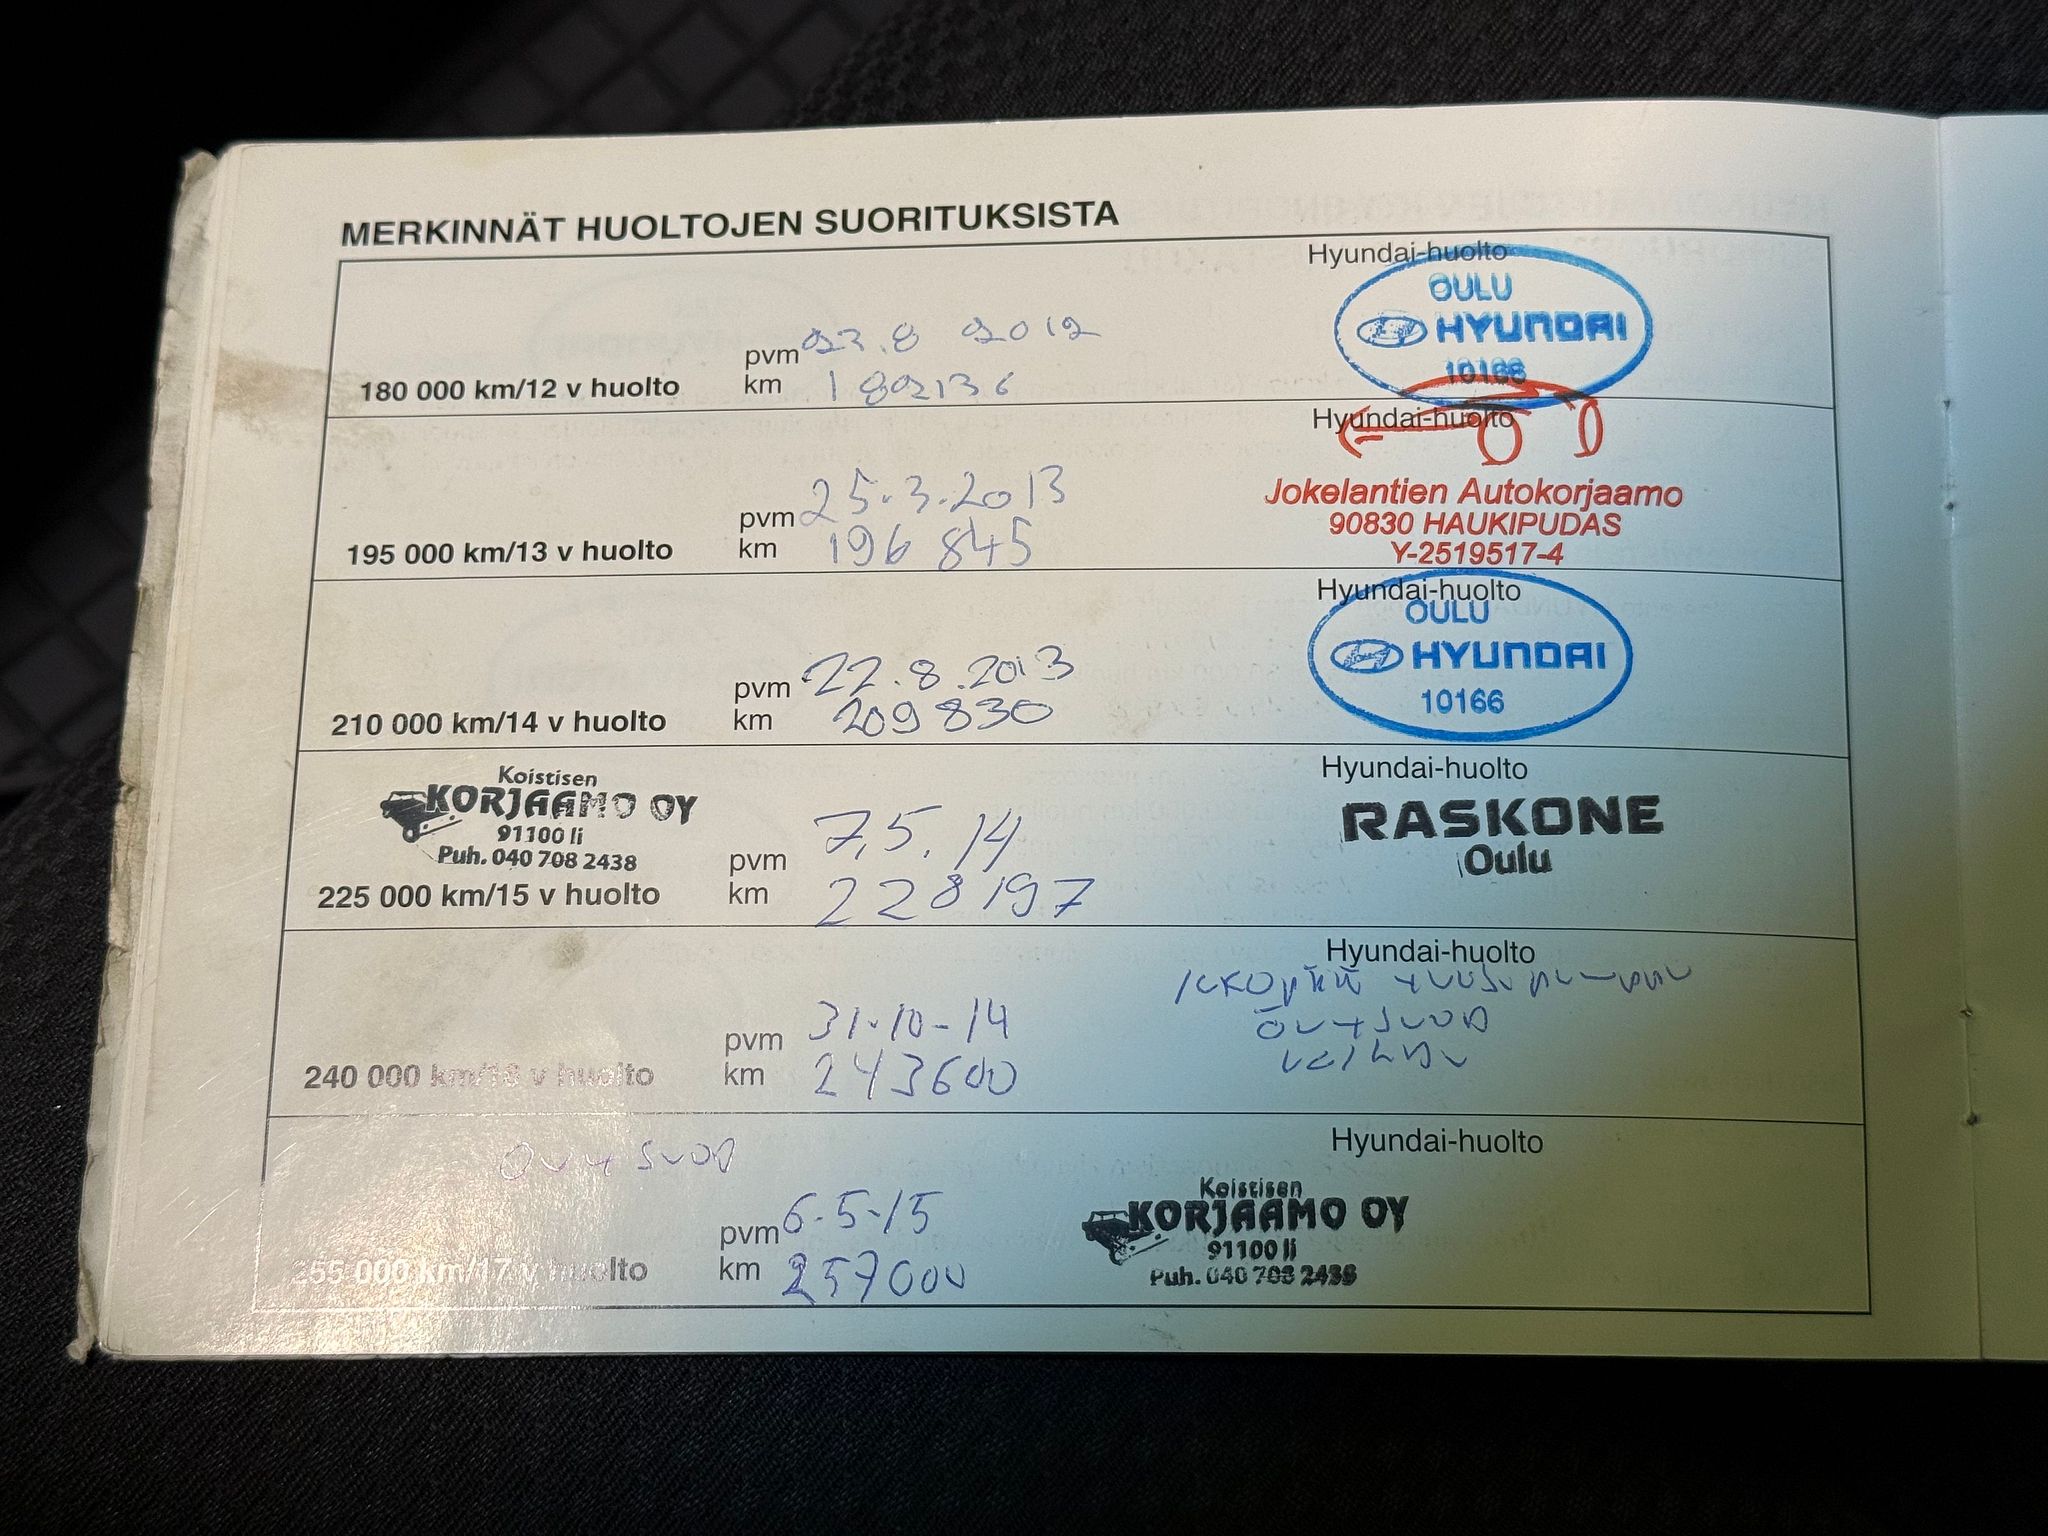 MERKINNÄT HUOLTOJEN SUORITUKSISTA
Hyundai-huolto
OULU
HYUNDAI
10166
pvm 23.8 2012
180 000 km/12 v huolto km 182136
Hyundai-huolto
pvm 25.3.2013
195 000 km/13 v huolto km 196 845
Jokelantien Autokorjaamo
90830 HAUKIPUDAS
Y-2519517-4
Hyundai-huolto
OULU
HYUNDAI
10166
pvm 22.8.2013
210 000 km/14 v huolto km 209 830
Koistisen
KORJAAMO OY
91100 Ii
Puh. 040 708 2438
Hyundai-huolto
RASKONE
Oulu
pvm 7.5.14
225 000 km/15 v huolto km 228197
Hyundai-huolto
öly + suod
pvm 31-10-14
240 000 km/16 v huolto km 243600
Hyundai-huolto
öly + suod
pvm 6-5-15
255 000 km/17 v huolto km 257000
Koistisen
KORJAAMO OY
91100 Ii
Puh. 040 708 2438